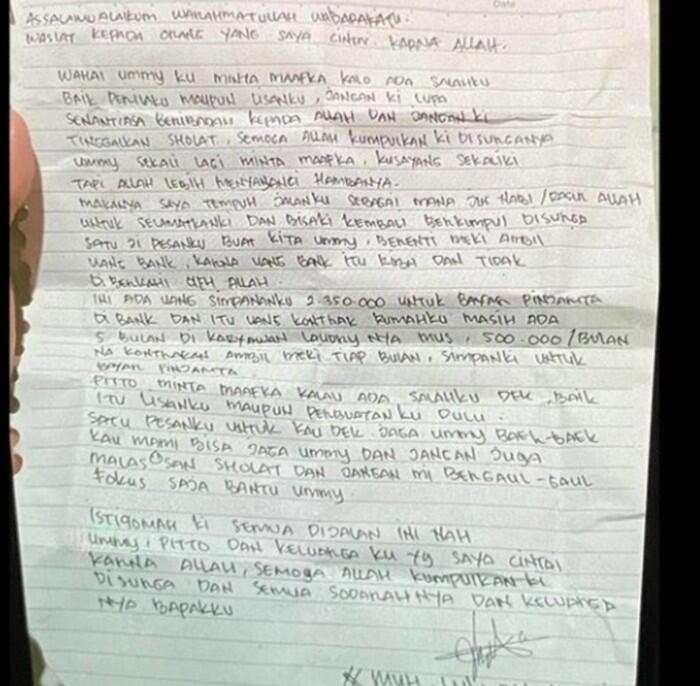 ASSALAMUALAIKUM WARAHMATULLAH WABARAKATU.
WASIAT KEPADA ORANG YANG SAYA CINTAI KARNA ALLAH.
WAHAI UMMY KU MINTA MAAFKA KALO ADA SALAHKU
BAIK PERILAKU MAUPUN LISANKU, JANGAN KI LUPA
SENANTIASA BERIBADAH KEPADA ALLAH DAN JANGAN KI
TINGGALKAN SHOLAT, SEMOGA ALLAH KUMPULKAN KI DISURGANYA
UMMY SEKALI LAGI MINTA MAAFKA, KUSAYANG SEKALIKI
TAPI ALLAH LEBIH MENYAYANGI HAMBANYA.
MAKANYA SAYA TEMPUH JALANKU SEBAGAI MANA JLN NABI / RASUL ALLAH
UNTUK SELAMATKANKI DAN BISAKI KEMBALI BERKUMPUL DISURGA
SATU JI PESANKU BUAT KITA UMMY, BERENTI MEKI AMBIL
UANG BANK, KARNA UANG BANK ITU RIBA DAN TIDAK
DIBERKAHI OLEH ALLAH.
INI ADA UANG SIMPANANKU 2.350.000 UNTUK BAYAR PINJAMTA
DI BANK DAN ITU UANG KONTRAK RUMAHKU MASIH ADA
5 BULAN DI KARYAWAN LAUNRY NYA MUS, 500.000/BULAN
NA KONTRAKAN AMBIL MEKI TIAP BULAN, SIMPANKI UNTUK
BAYAR PINJAMTA.
PITTO MINTA MAAFKA KALAU ADA SALAHKU DEK, BAIK
ITU LISANKU MAUPUN PERBUATAN KU DULU.
SATU PESANKU UNTUK KAU DEK JAGA UMMY BAEK-BAEK
KAU MAMI BISA JAGA UMMY DAN JANGAN JUGA
MALASOSAN SHOLAT DAN JANGAN MI BERGAUL-GAUL
FOKUS SAJA BANTU UMMY.
ISTIQOMAH KI SEMUA DIJALAN INI NAH
UMMY, PITTO DAN KELUARGA KU YG SAYA CINTAI
KARNA ALLAH, SEMOGA ALLAH KUMPULKAN KI
DISURGA DAN SEMUA SODARAHNYA DAN KELUARGA
NYA BAPAKKU
MUH.